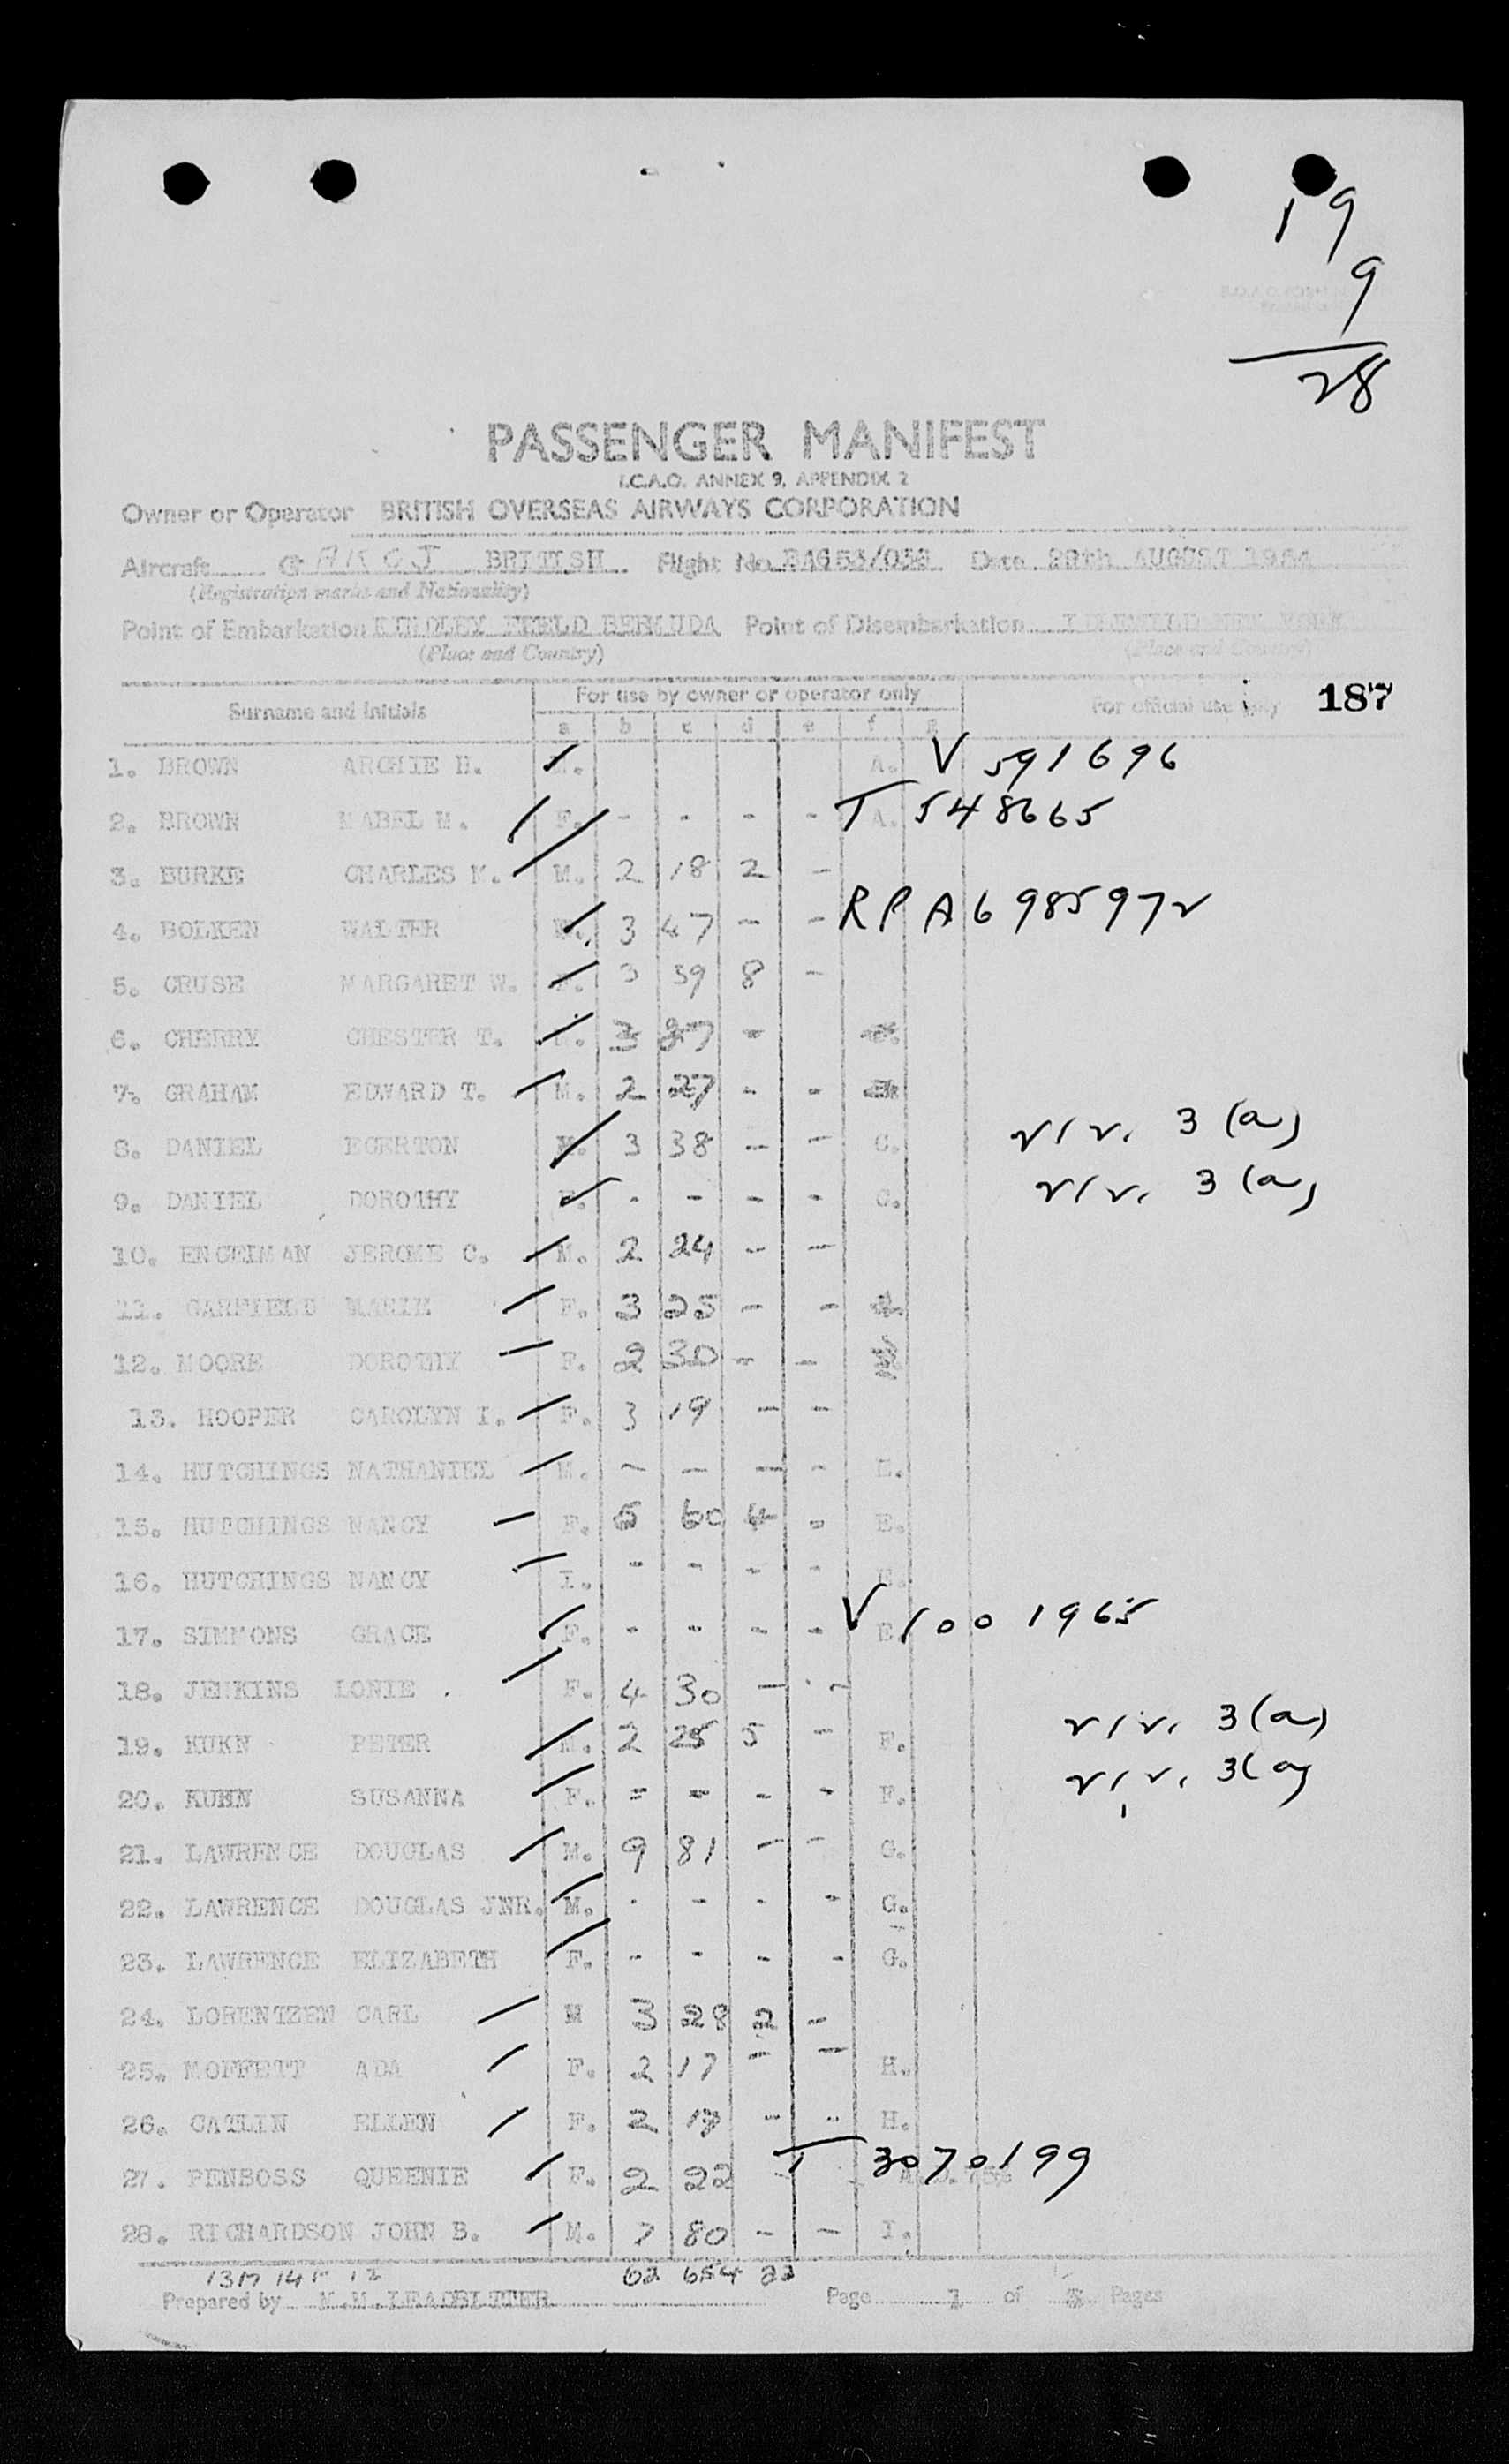 19
9
28
PASSENGER MANIFEST
I.C.A.O. ANNEX 9, APPENDIX 2
Owner or Operator BRITISH OVERSEAS AIRWAYS CORPORATION
Aircraft G AKCJ BRITISH Flight No. BA653/038 Date 29th AUGUST 1954
(Registration marks and Nationality)
Point of Embarkation KINDLEY FIELD BERMUDA Point of Disembarkation IDLEWILD NEW YORK
(Place and Country) (Place and Country)
Surname and initials For use by owner or operator only For official use only 187
a b c d e f g
1. BROWN ARCHIE H. M. A. V 591696
2. BROWN MABEL M. F. - - - - A. T 548665
3. BURKE CHARLES M. M. 2 18 2 -
4. BOLKEN WALTER M. 3 47 - - RP A6985972
5. CRUSE MARGARET W. F. 3 39 8 -
6. CHERRY CHESTER T. M. 3 37 -
7. GRAHAM EDWARD T. M. 2 27 - -
8. DANIEL EGERTON M. 3 38 - - C. 212. 3(a)
9. DANIEL DOROTHY F. - - - - C. 212. 3(a)
10. ENGELMAN JEROME C. M. 2 24 - -
11. GARFIELD MARIE F. 3 25 - -
12. MOORE DOROTHY F. 2 30 - -
13. HOOPER CAROLYN I. F. 3 19 - -
14. HUTCHINGS NATHANIEL M. - - - - E.
15. HUTCHINGS NANCY F. 6 60 4 - E.
16. HUTCHINGS NANCY I. - - - - E.
17. SIMMONS GRACE F. - - - - E. V 1001965
18. JENKINS LONIE F. 4 30 - -
19. KUKN PETER M. 2 25 5 - F. 212. 3(a)
20. KUHN SUSANNA F. - - - - F. 212. 3(a)
21. LAWRENCE DOUGLAS M. 9 81 - - G.
22. LAWRENCE DOUGLAS JNR. M. - - - - G.
23. LAWRENCE ELIZABETH F. - - - - G.
24. LORENTZEN CARL M 3 28 2 -
25. MOFFETT ADA F. 2 17 - - H.
26. CATLIN ELLEN F. 2 17 - - H.
27. PENBOSS QUEENIE F. 2 22 T 3070199
28. RICHARDSON JOHN B. M. 7 80 - - I.
13M 14F 1I 62 654 22
Prepared by M.M.LEADBITTER Page 1 of Pages